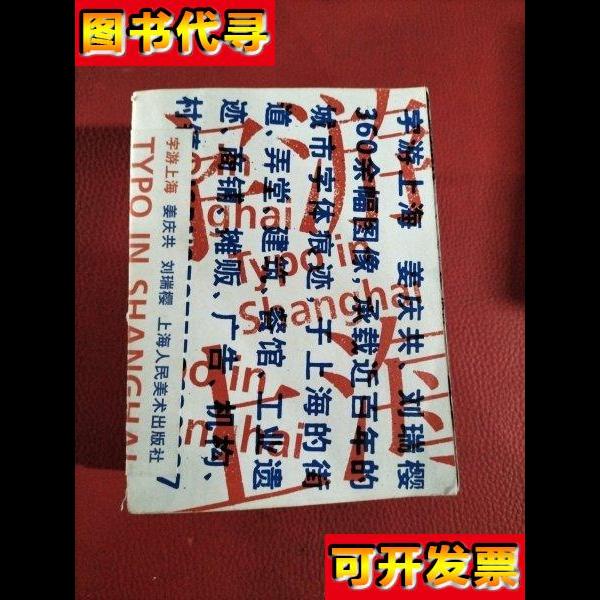 图书代寻
字游上海 姜庆共、刘瑞樱
360余幅图像,承载近百年的
城市字体痕迹,于上海的街
道、弄堂、建筑、餐馆、工业遗
迹、商铺、摊贩、广告、机构、
村
Typo in
Shanghai
字游上海 姜庆共 刘瑞樱 上海人民美术出版社
TYPO IN SHANGHAI
7
可开发票